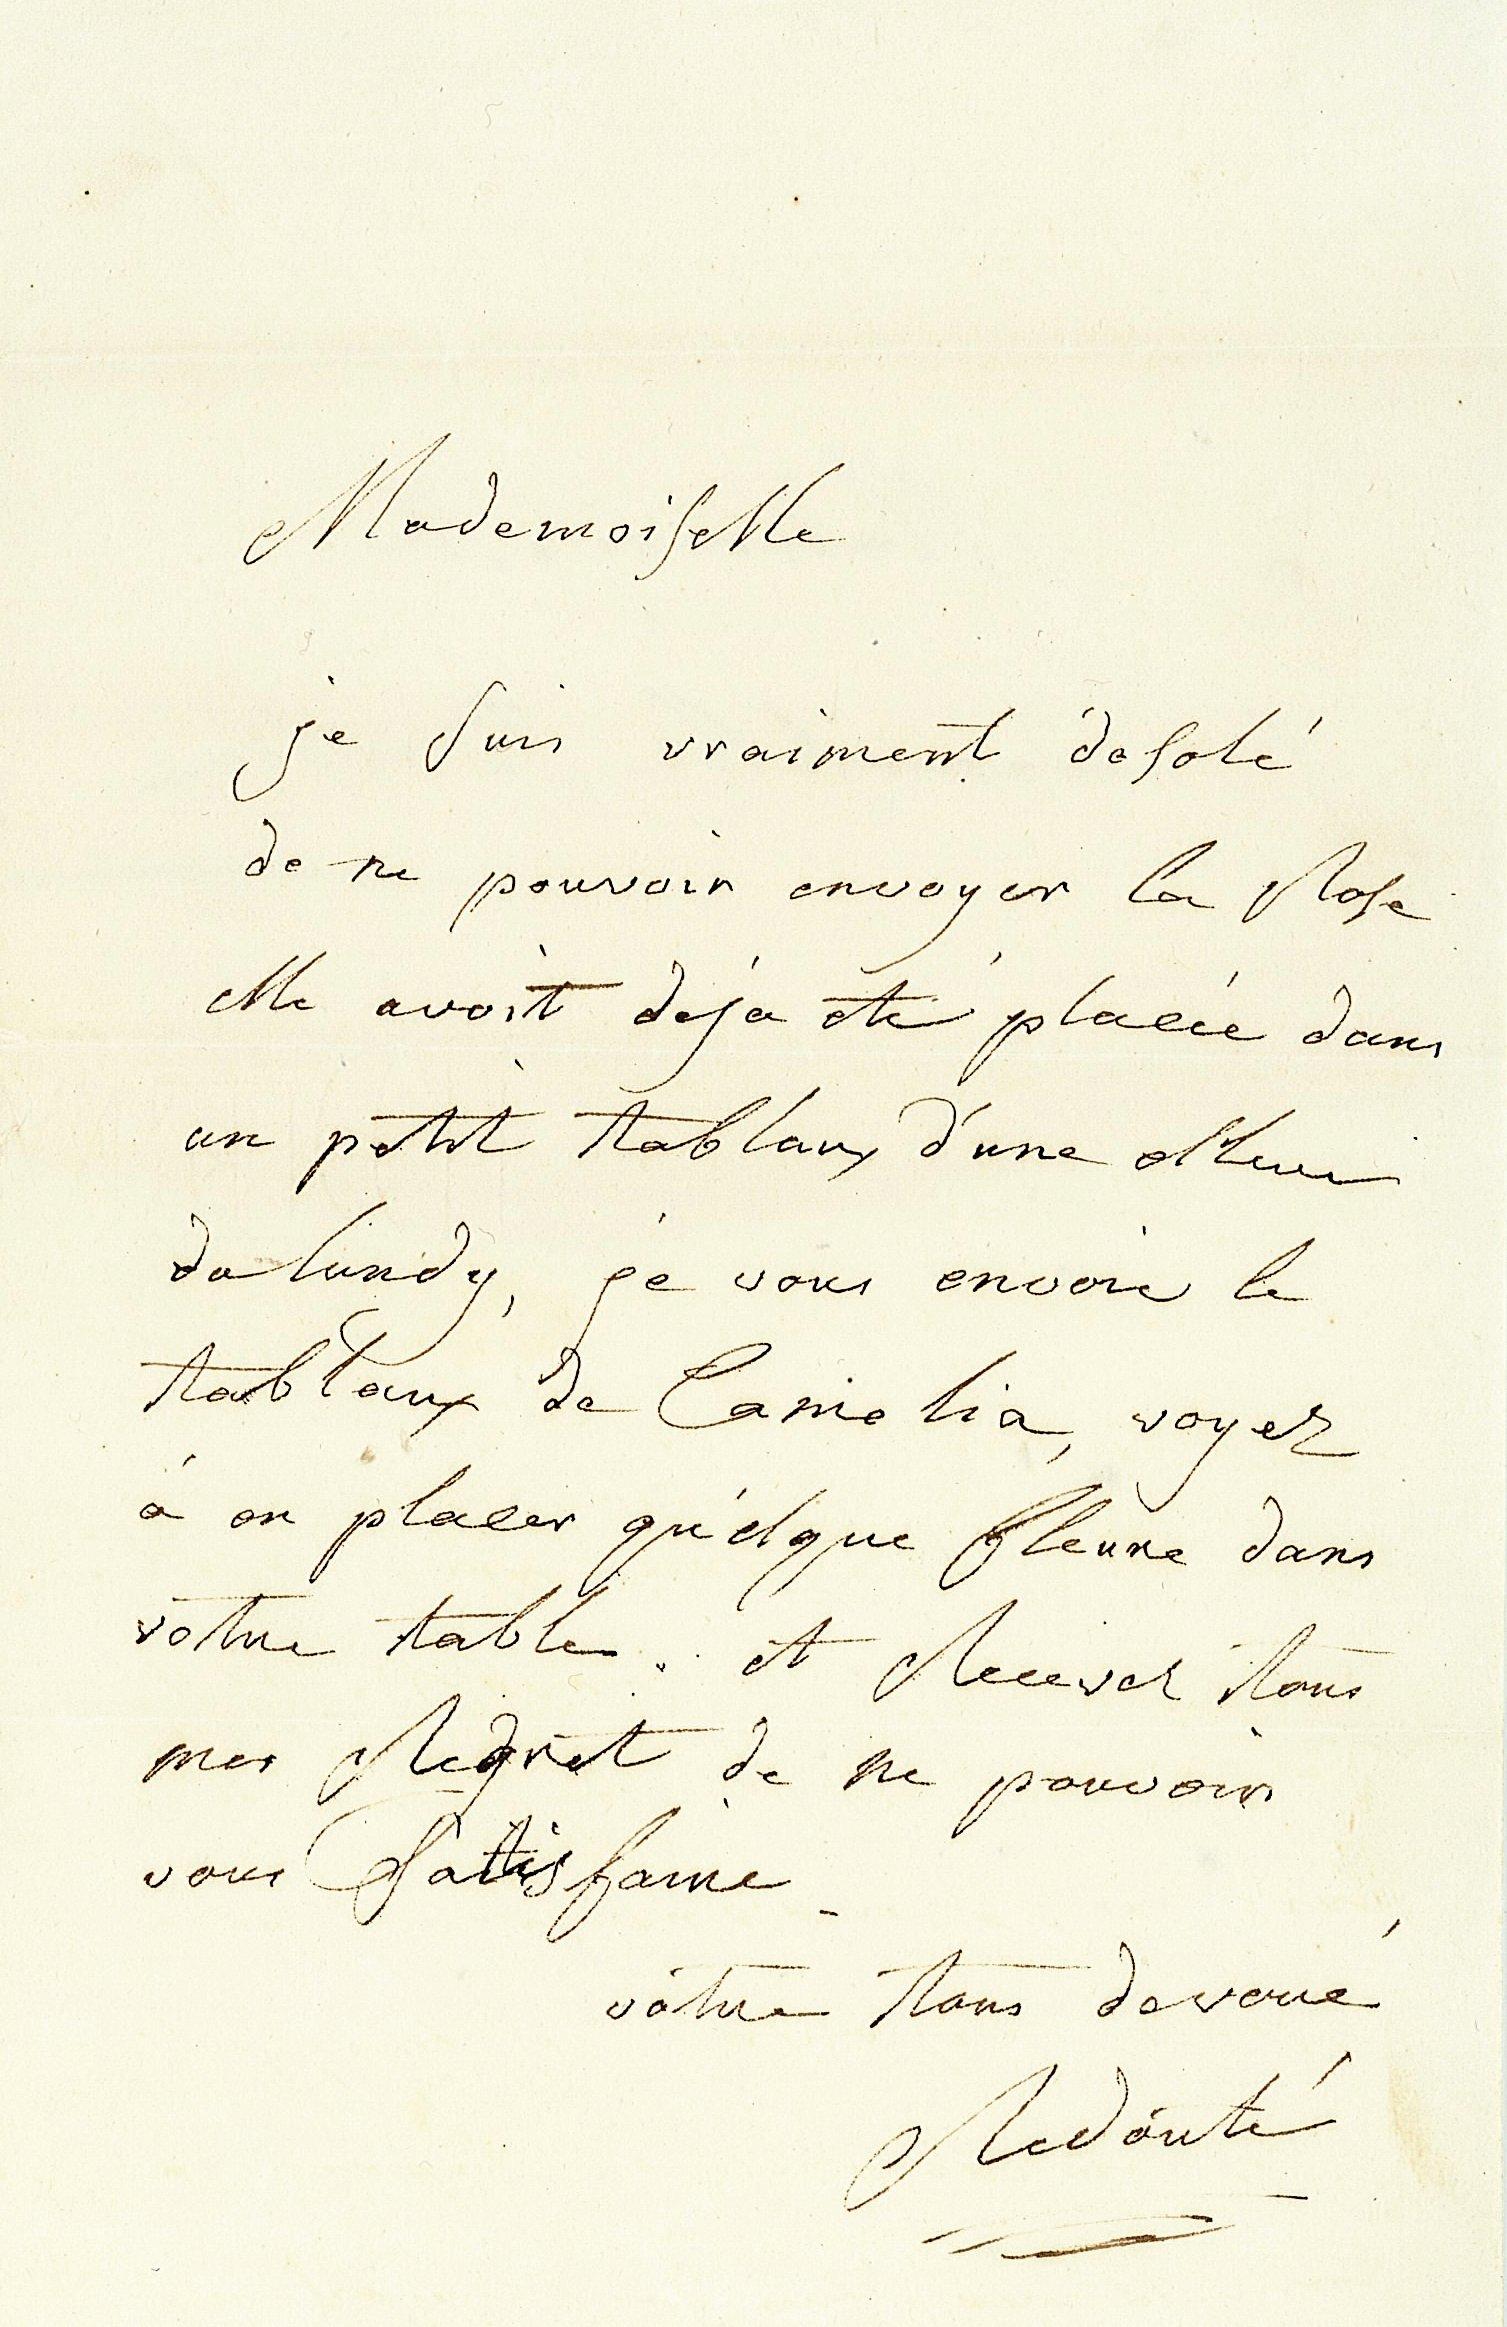 Mademoiselle
je suis vraiment désolé
de ne pouvoir envoyer la Rose
elle avoit deja été placée dans
un petit tablaux d'une elleve
du lundy, je vous envoie le
tablaux de Camelia, voyez
à en placer quelque fleure dans
votre table. et Recevez tous
mes Regret de ne pouvoir
vous Satisfaire
votre tous devoué
Redouté